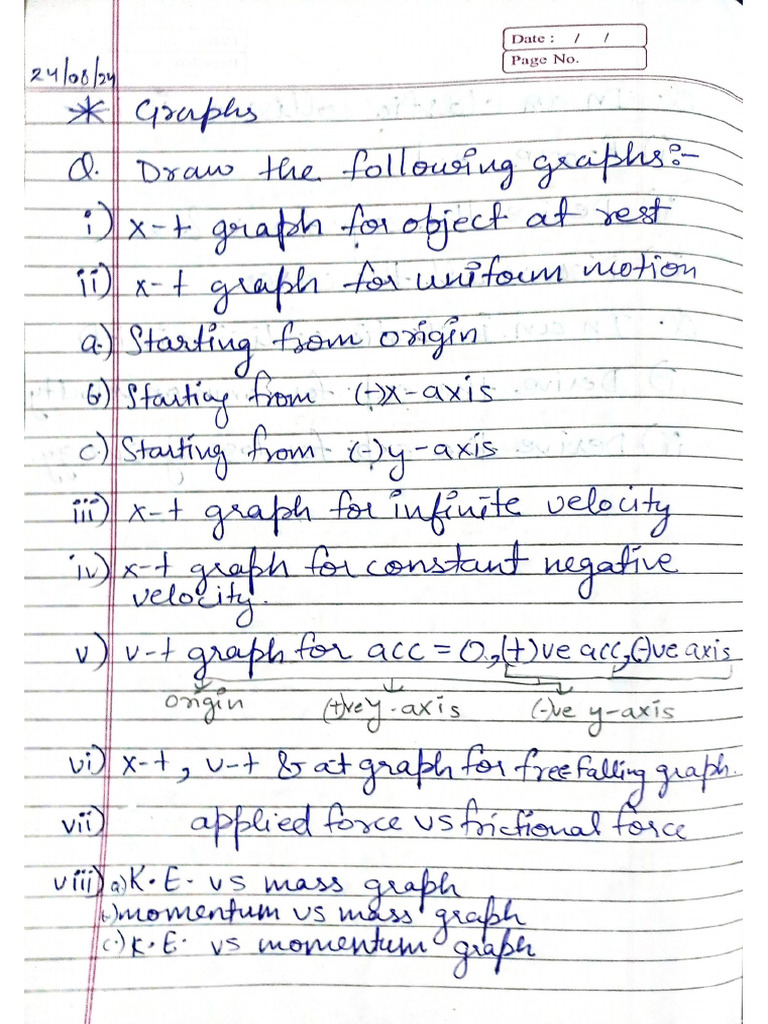 Date : / /
Page No.
24/08/24
* Graphs
Q. Draw the following graphs:-
i) x-t graph for object at rest
ii) x-t graph for uniform motion
a.) Starting from origin
b) Starting from (+)x-axis
c.) Starting from (-)y-axis
iii) x-t graph for infinite velocity
iv) x-t graph for constant negative
velocity.
v) v-t graph for acc = 0, (+)ve acc, (-)ve axis
origin (+)ve y-axis (-)ve y-axis
vi) x-t, v-t & at graph for free falling graph.
vii) applied force vs frictional force
viii) a) K.E. vs mass graph
b) momentum vs mass graph
(c.) K.E. vs momentum graph